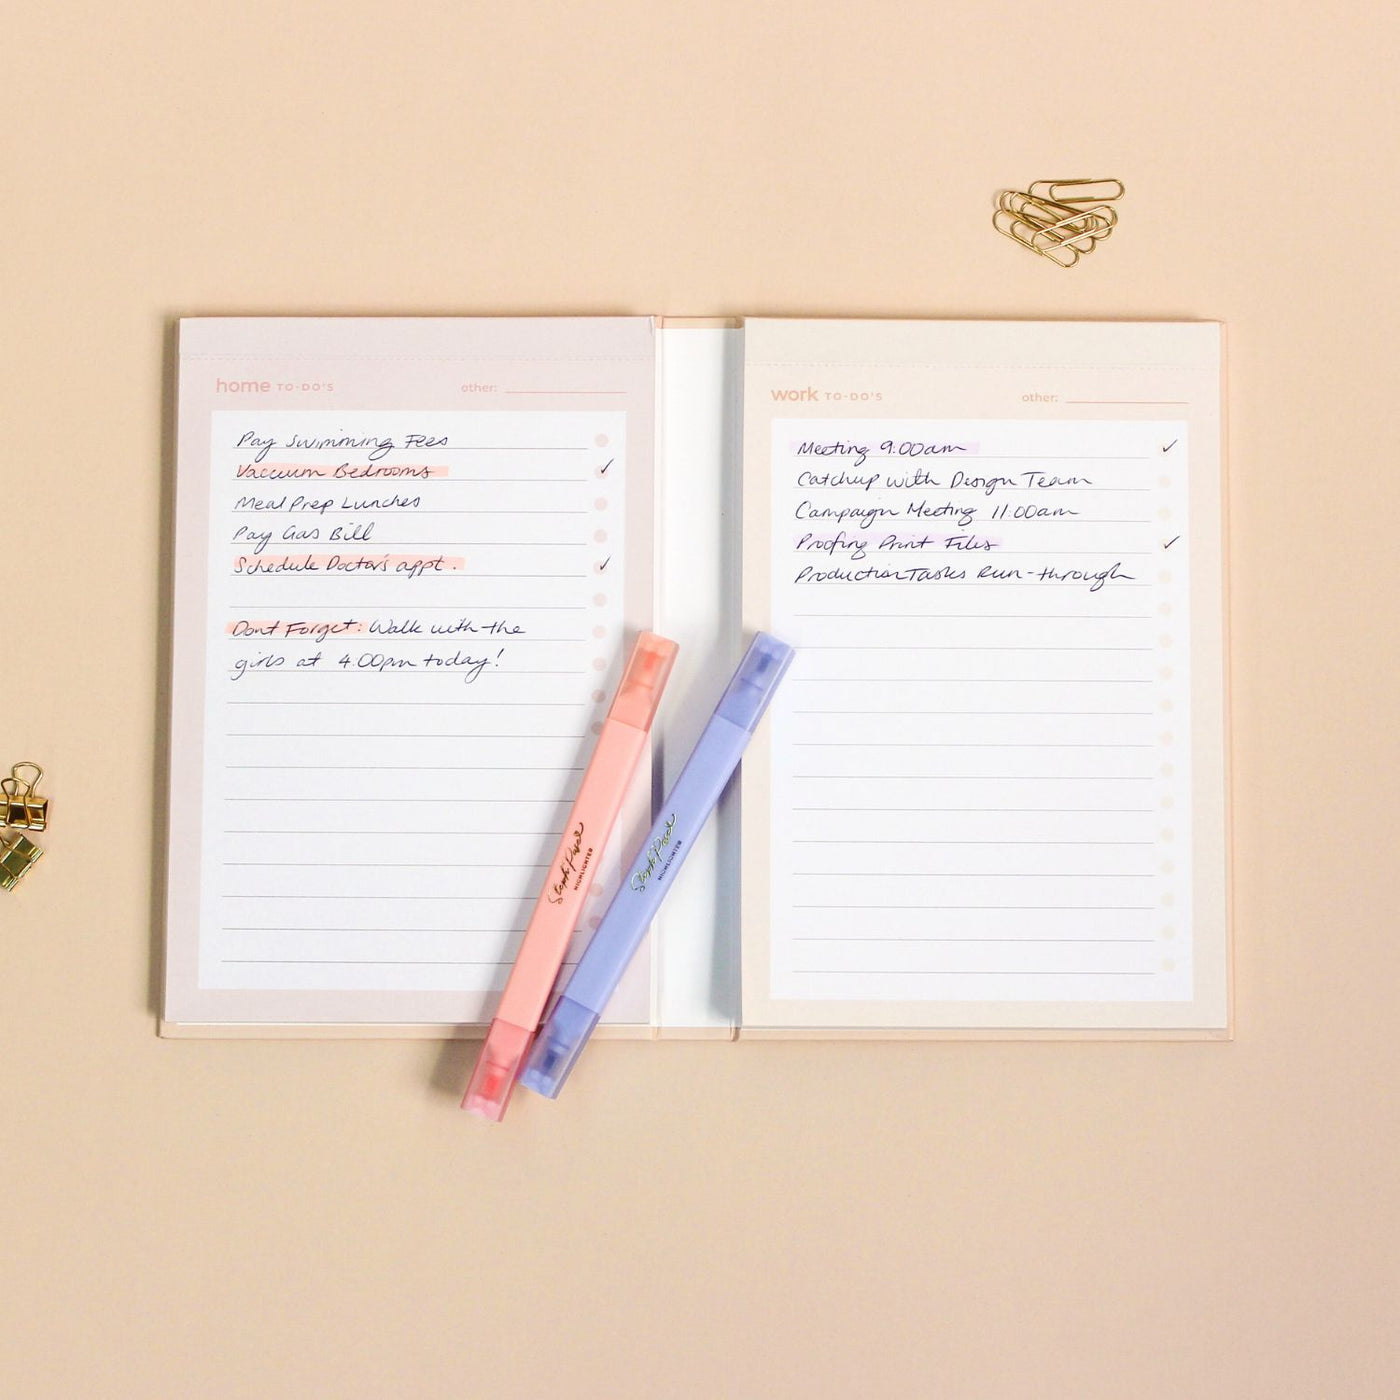 home TO-DO'S other:
Pay Swimming Fees
Vaccuum Bedrooms
Meal Prep Lunches
Pay Gas Bill
Schedule Doctor's appt.
Dont Forget: Walk with the
girls at 4.00pm today!
work TO-DO'S other:
Meeting 9:00am
Catchup with Design Team
Campaign Meeting 11:00am
Proofing Print Files
Production Tasks Run-through
Steph Pase
HIGHLIGHTER
Steph Pase
HIGHLIGHTER